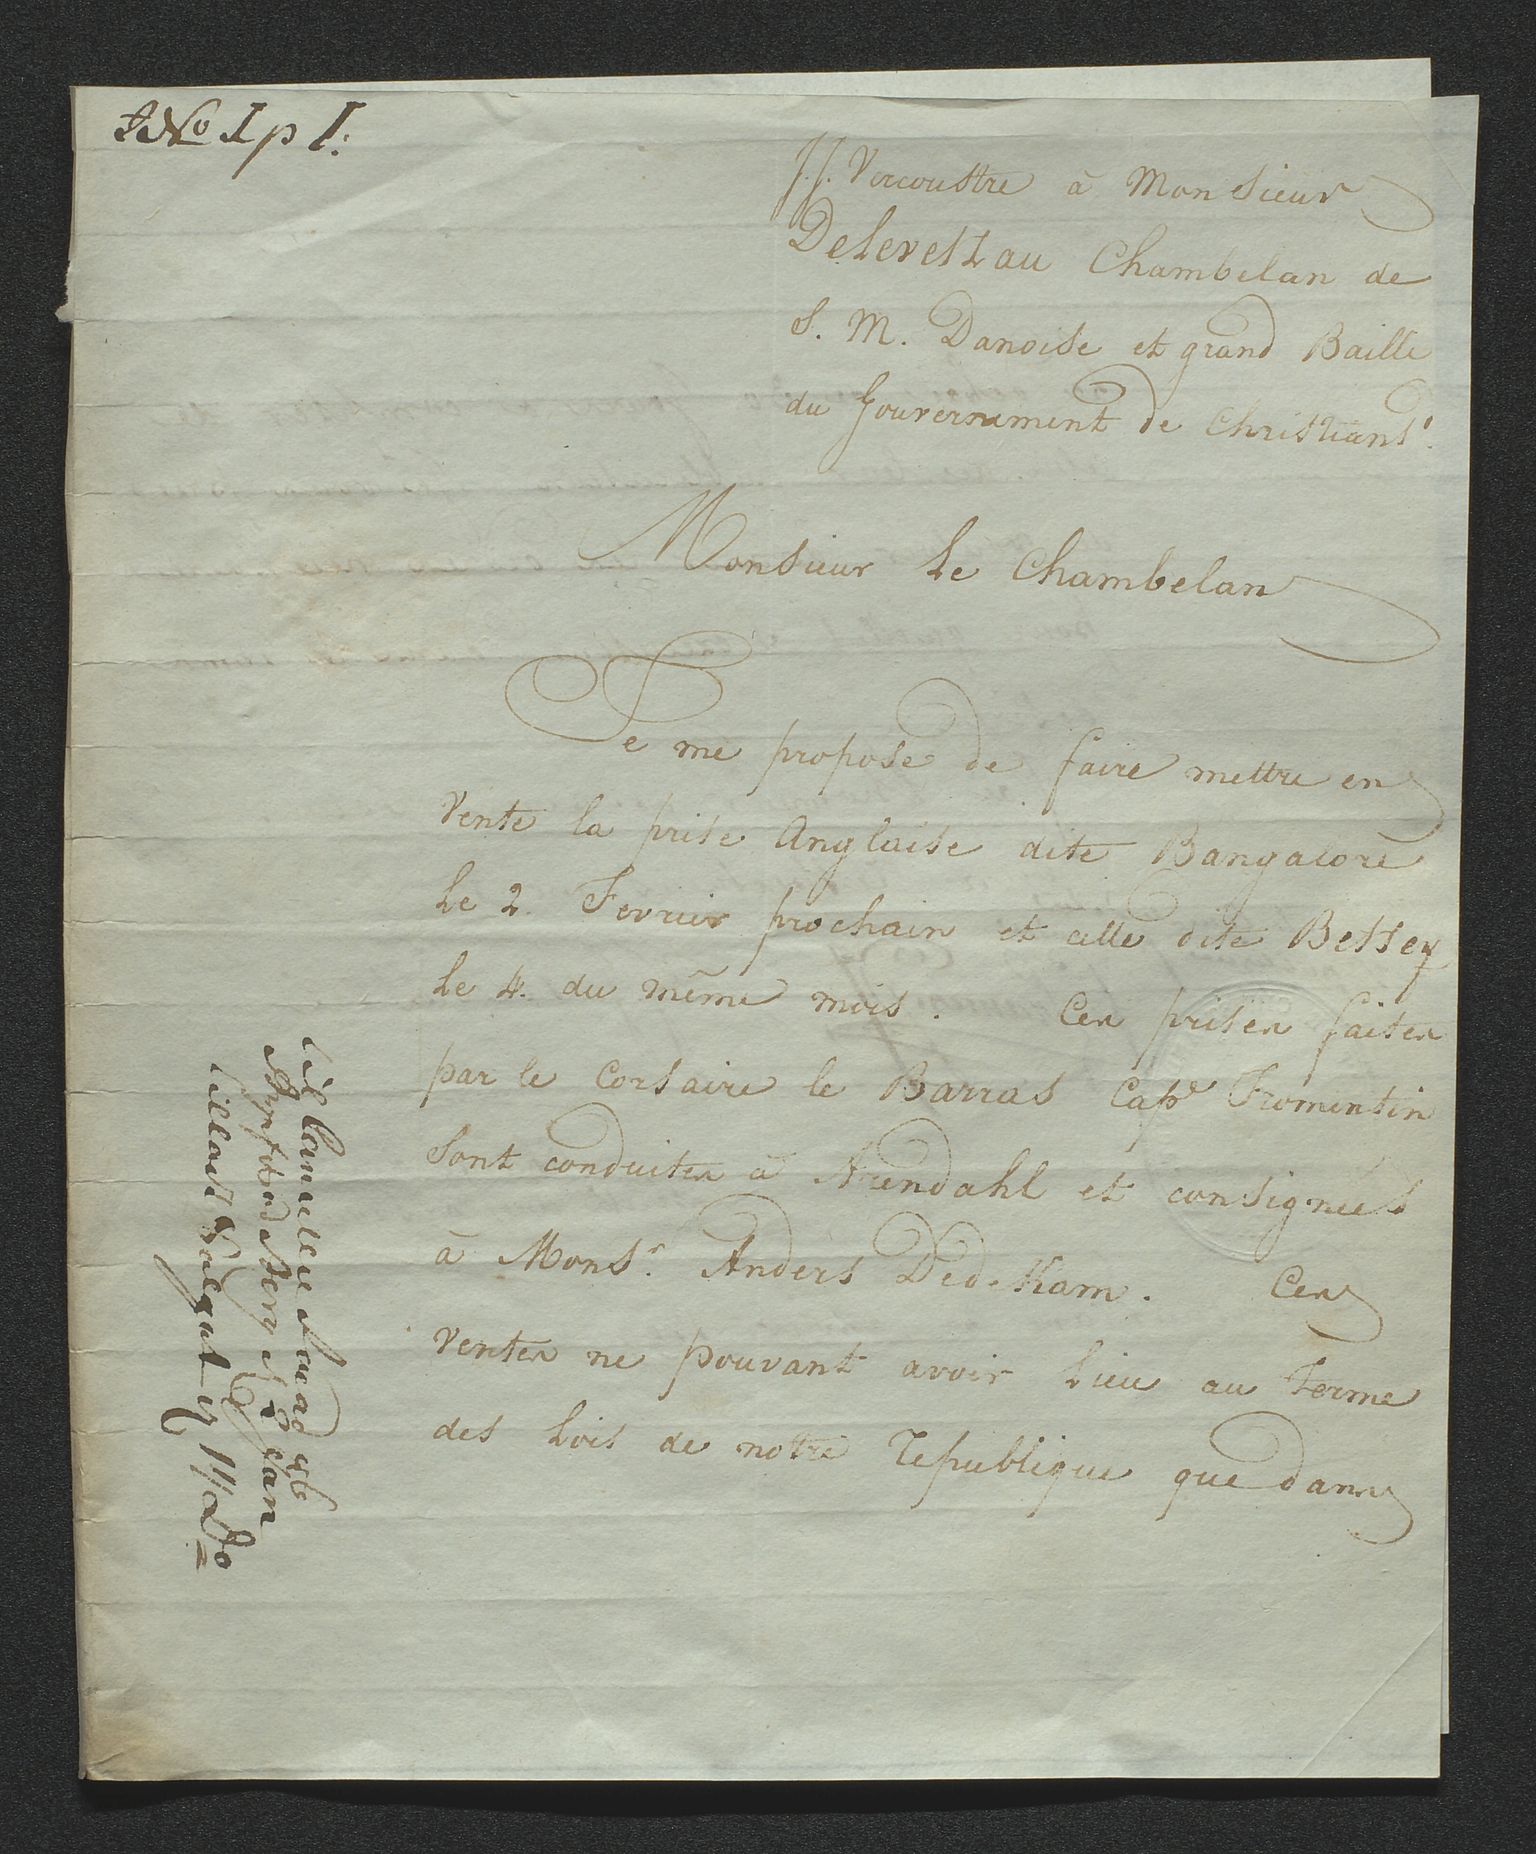 No I p I.
J.J. Vercoustre à Monsieur
Delevetzau Chambelan de
S. M. Danoise et grand Baille
du Gouvernement de Christians'.
Monsieur Le Chambelan
Je me propose de faire mettre en
Vente la prise Anglaise dite Bangalore
Le 2. Fevrier prochain et celle dite Betsey
Le 4. du même mois. Ces prises faites
par le Corsaire le Barras Cape Fromentin
Sont conduites à Arendahl et consignées
à Monsr. Anders Dedekam. Ces
Ventes ne pouvant avoir Lieu au Terme
des Lois de notre republique que dans